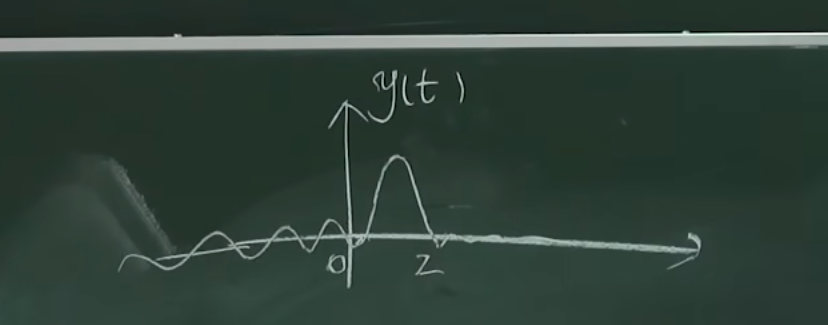 y(t)
0 2